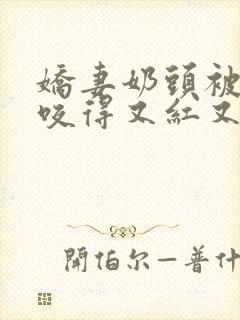 嬌妻奶頭被
咬得又紅又
開伯尔—普什